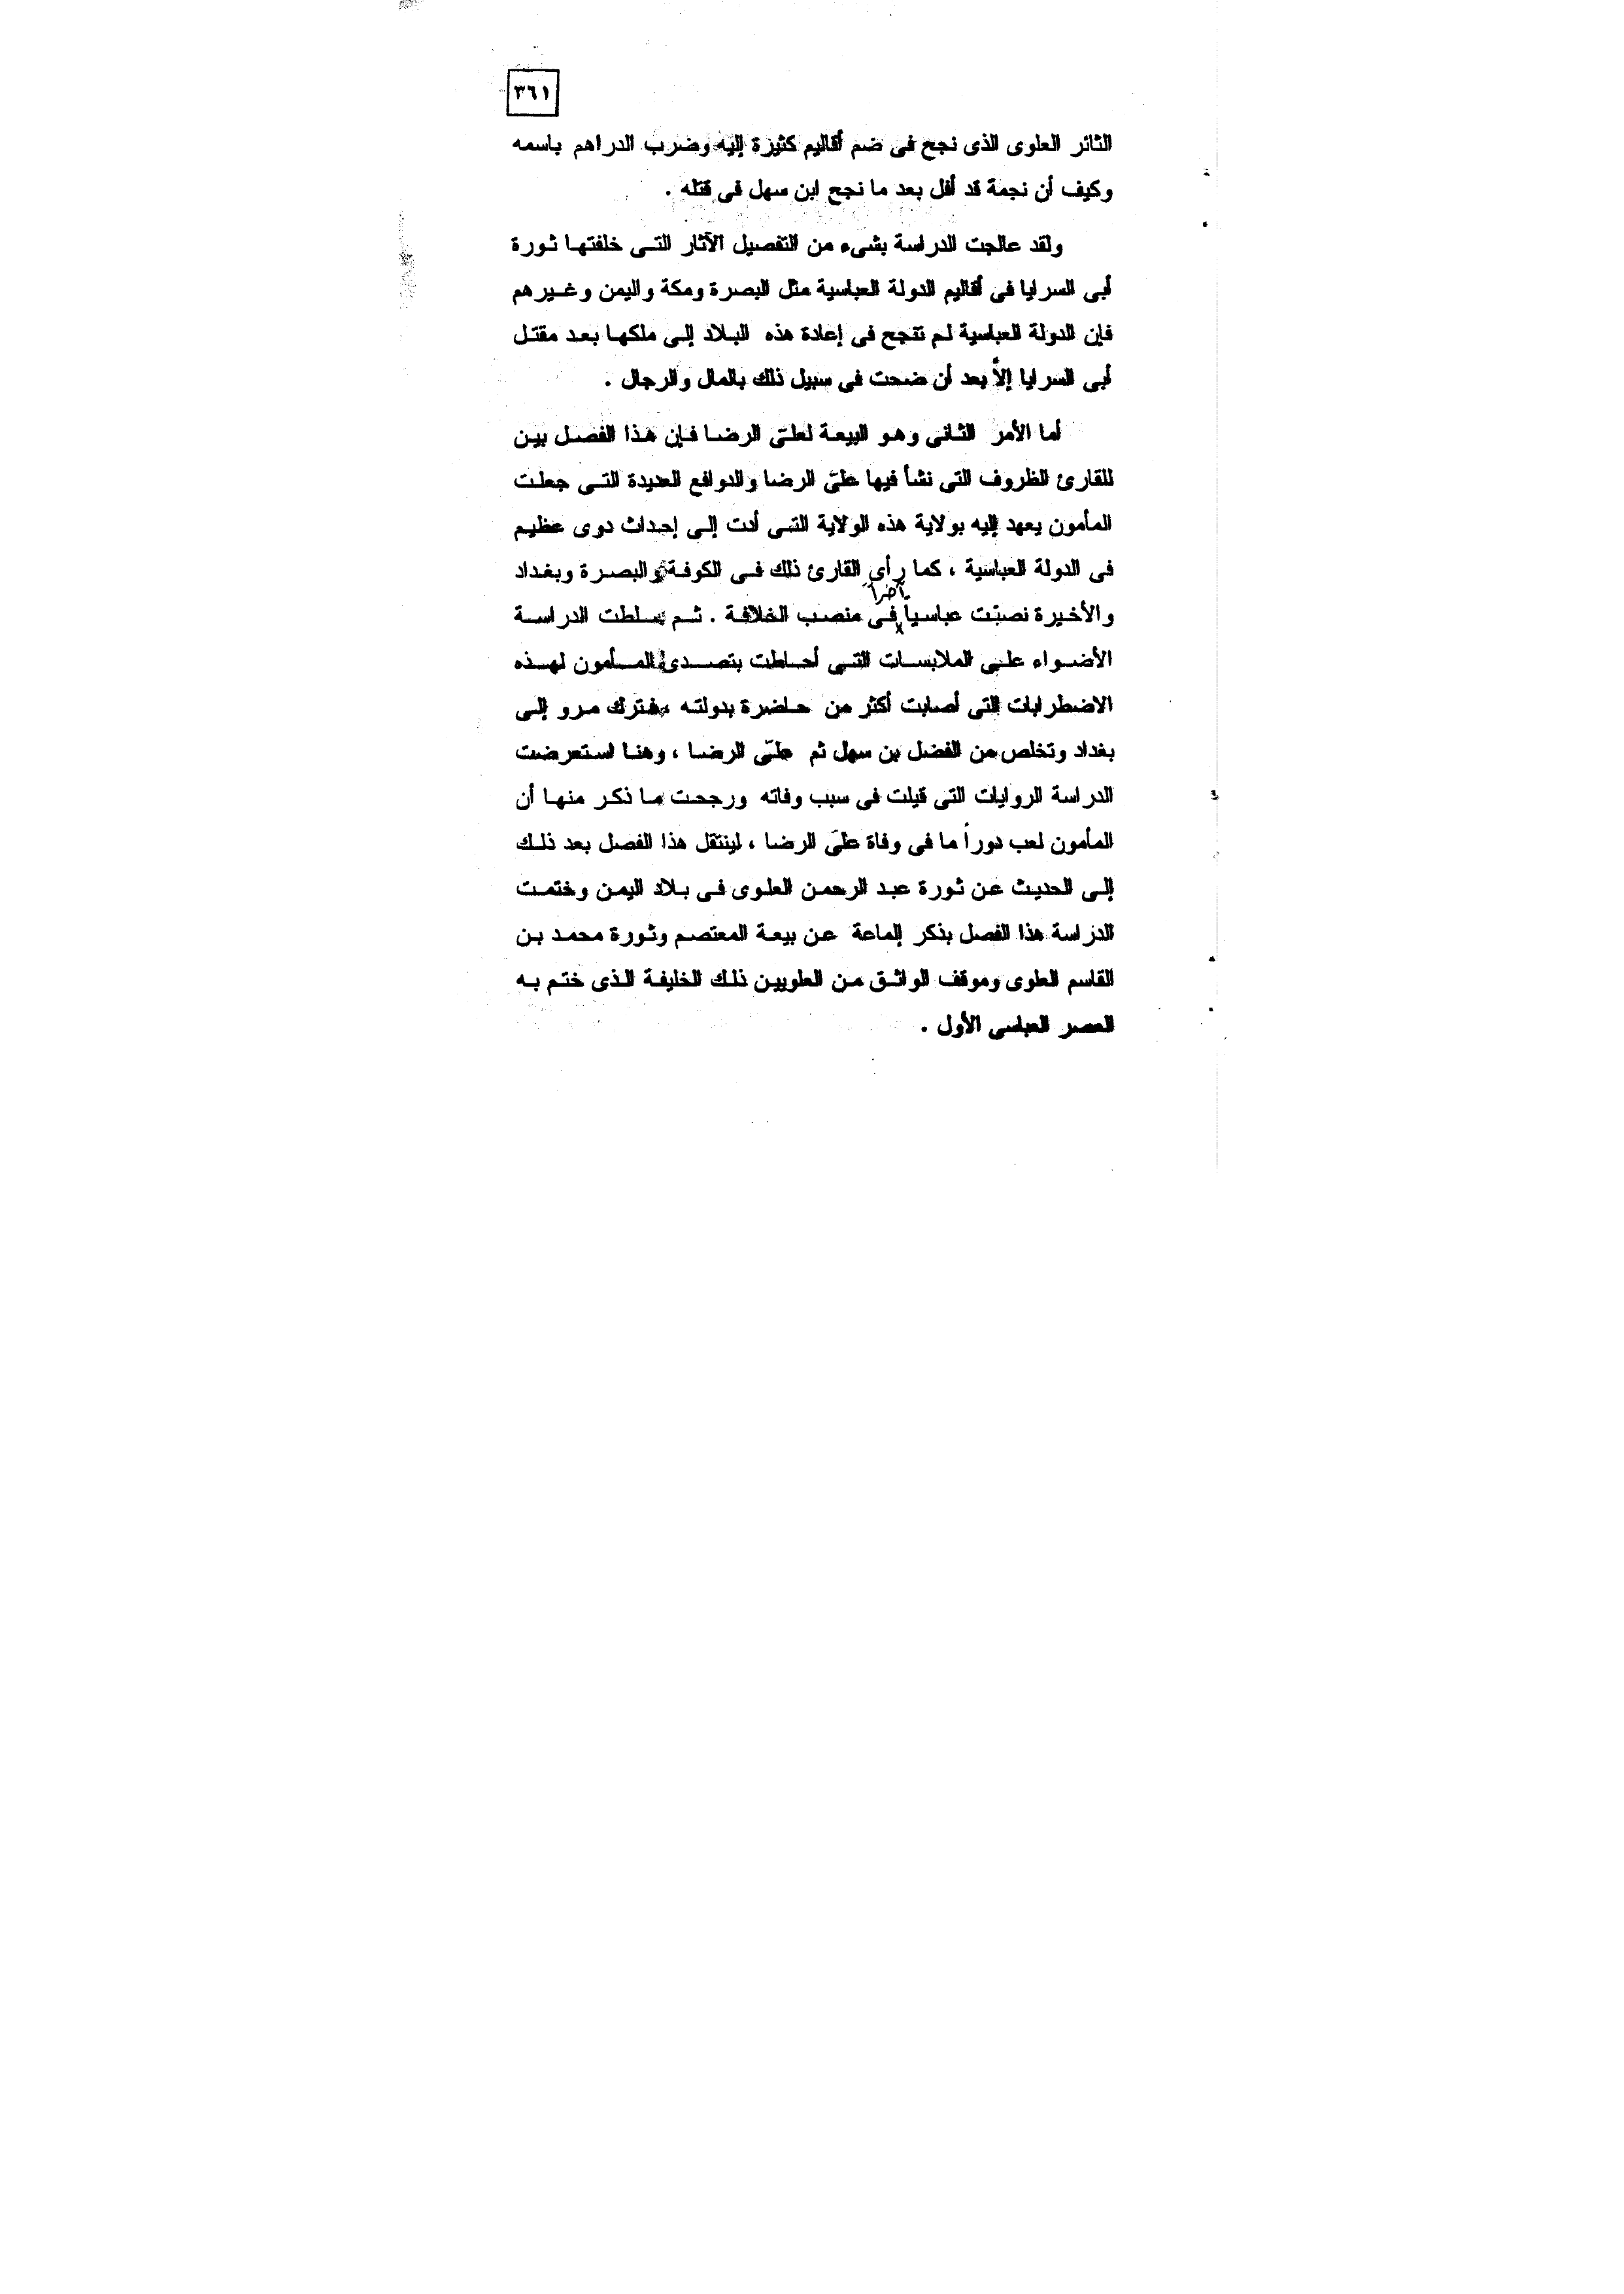 ٣٦١
الثائر العلوى الذى نجح فى ضم أقاليم كثيرة إليه وضرب الدراهم باسمه
وكيف أن نجمة قد أفل بعد ما نجح ابن سهل فى قتله .
ولقد عالجت الدراسة بشىء من التفصيل الآثار التى خلفتها ثورة
أبى السرايا فى أقاليم الدولة العباسية مثل البصرة ومكة واليمن وغيرهم
فإن الدولة العباسية لم تنجح فى إعادة هذه البلاد إلى ملكها بعد مقتل
أبى السرايا إلاّ بعد أن ضحت فى سبيل ذلك بالمال والرجال .
أما الأمر الثانى وهو البيعة لعلىّ الرضا فإن هذا الفصل بين
للقارئ الظروف التى نشأ فيها علىّ الرضا والدوافع العديدة التى جعلت
المأمون يعهد إليه بولاية هذه الولاية التى أدت إلى إحداث دوى عظيم
فى الدولة العباسية ، كما رأى القارئ ذلك فى الكوفة والبصرة وبغداد
آخراً
والأخيرة نصبّت عباسياً فى منصب الخلافة . ثم سلطت الدراسة
الأضواء على الملابسات التى أحاطت بتصدى المأمون لهذه
الاضطرابات التى أصابت أكثر من حاضرة بدولته فترك مرو إلى
بغداد وتخلص من الفضل بن سهل ثم علىّ الرضا ، وهنا استعرضت
الدراسة الروايات التى قيلت فى سبب وفاته ورجحت ما ذكر منها أن
المأمون لعب دوراً ما فى وفاة علىّ الرضا ، لينتقل هذا الفصل بعد ذلك
إلى الحديث عن ثورة عبد الرحمن العلوى فى بلاد اليمن وختمت
الدراسة هذا الفصل بذكر إلماعة عن بيعة المعتصم وثورة محمد بن
القاسم العلوى وموقف الواثق من العلويين ذلك الخليفة الذى ختم به
العصر العباسى الأول .